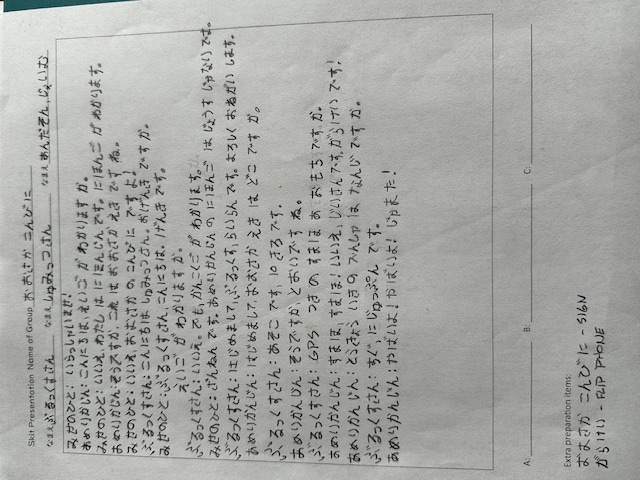 Skit Presentation Name of Group おおさか こんびに
なまえ ぶるっくすさん なまえ しゅみっつさん なまえ あんだそん,じぇいむ
みせのひと: いらっしゃいませ!
あめりかじん: こんにちは, えいご が わかります か。
みせのひと: いいえ, わたし は にほんじん です。 にほんご が わかります。
あめりかじん: そうですか, これ は おおさか えき です ね。
みせのひと: いいえ, おおさか の こんびに です よ!
ぶるっくすさん: こんにちは しゅみっつさん。 おげんき です か。
みせのひと: ぶるっくすさん, こんにちは。 げんき です。
えいご が わかります か。
ぶるっくすさん: いいえ。 でも, かんこくご が わかります。
みせのひと: ざんねん です。 あめりかんじん の にほんご は じょうず じゃない です。
ぶるっくすさん: はじめまして, ぶるっくす, らいらん です。 よろしく おねがい します。
あめりかんじん: はじめまして, おおさか えき は どこ です か。
ぶるっくすさん: あそこ です, 10 きろ です.
あめりかんじん: そうですか, とおい です ね。
ぶるっくすさん: GPS つき の すまほ お おもち です か。
あめりかんじん: すまほ, すまほ! いいえ, じいさん です, がらけい です!
あめりかんじん: とうきょう いき の でんしゃ は なんじ です か。
ぶるっくすさん: すぐ, にじゅっぷん です。
あめりかんじん: やばいよ! やばいよ! じゃまた!
A: B: C:
Extra preparation items:
おおさか こんびに - SIGN
がらけい - FLIP PHONE